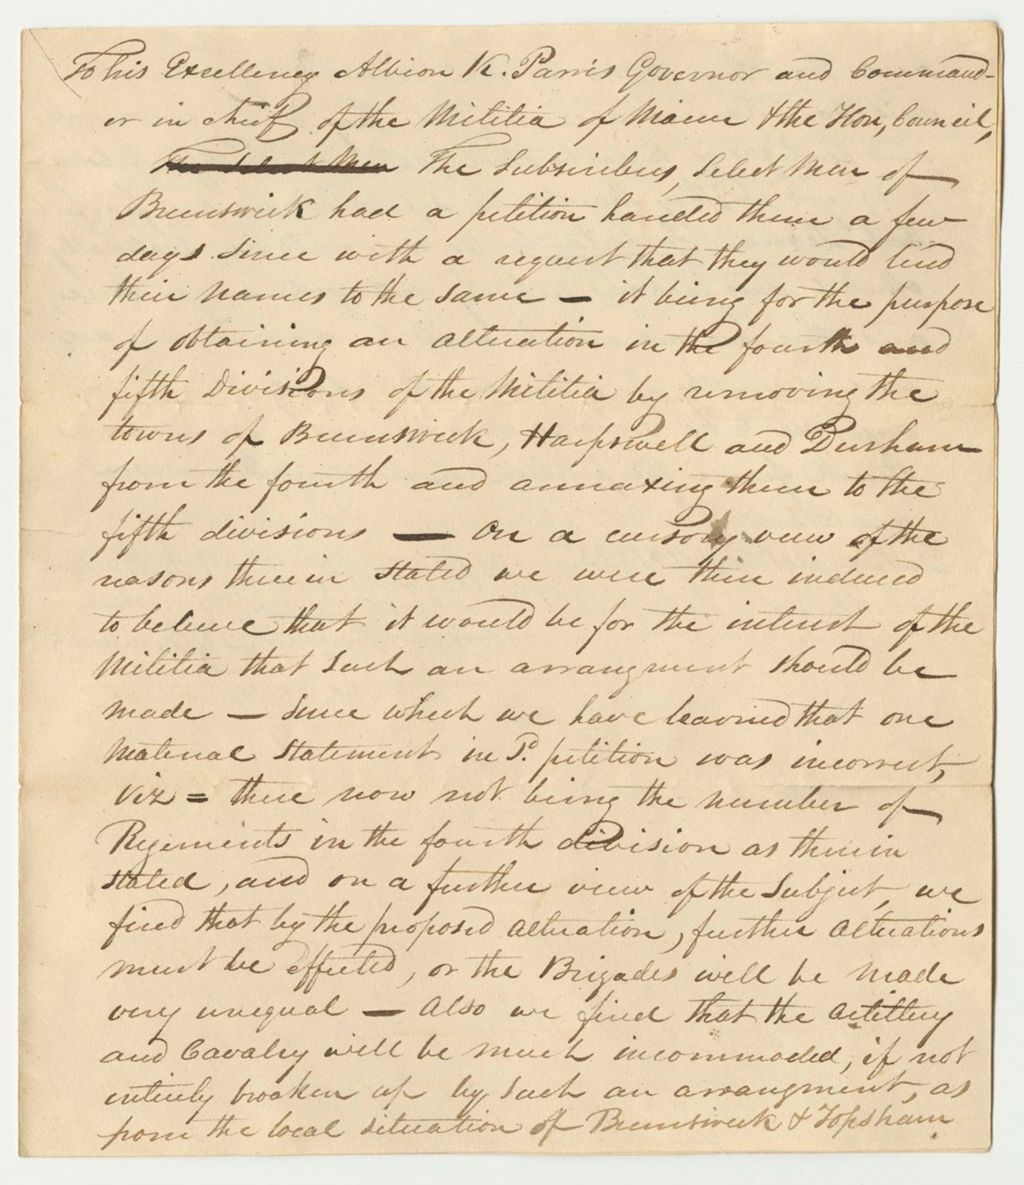 To his Excellency Albion K. Parris Governor and Command-
er in chief of the Militia of Maine & the Hon, Council,
The Select Men The Subscribers, Select Men of
Brunswick had a petition handed them a few
days since with a request that they would lend
their names to the same — it being for the purpose
of obtaining an alteration in the fourth and
fifth Divisions of the Militia by removing the
towns of Brunswick, Harpswell and Durham
from the fourth and annaxing them to the
fifth divisions — On a cursory view of the
reasons therein stated we were then induced
to believe that it would be for the interest of the
Militia that such an arrangment should be
made — Since which we have learned that one
material statement in Sd. petition was incorrect,
viz = there now not being the number of
Regiments in the fourth division as therein
stated, and on a further view of the Subject, we
find that by the proposed alteration, further alterations
must be effected, or the Brigades will be made
very unequal — Also we find that the artillery
and Cavalry will be much incommoded, if not
entirely broaken up by such an arrangment, as
from the local situation of Brunswick & Topsham